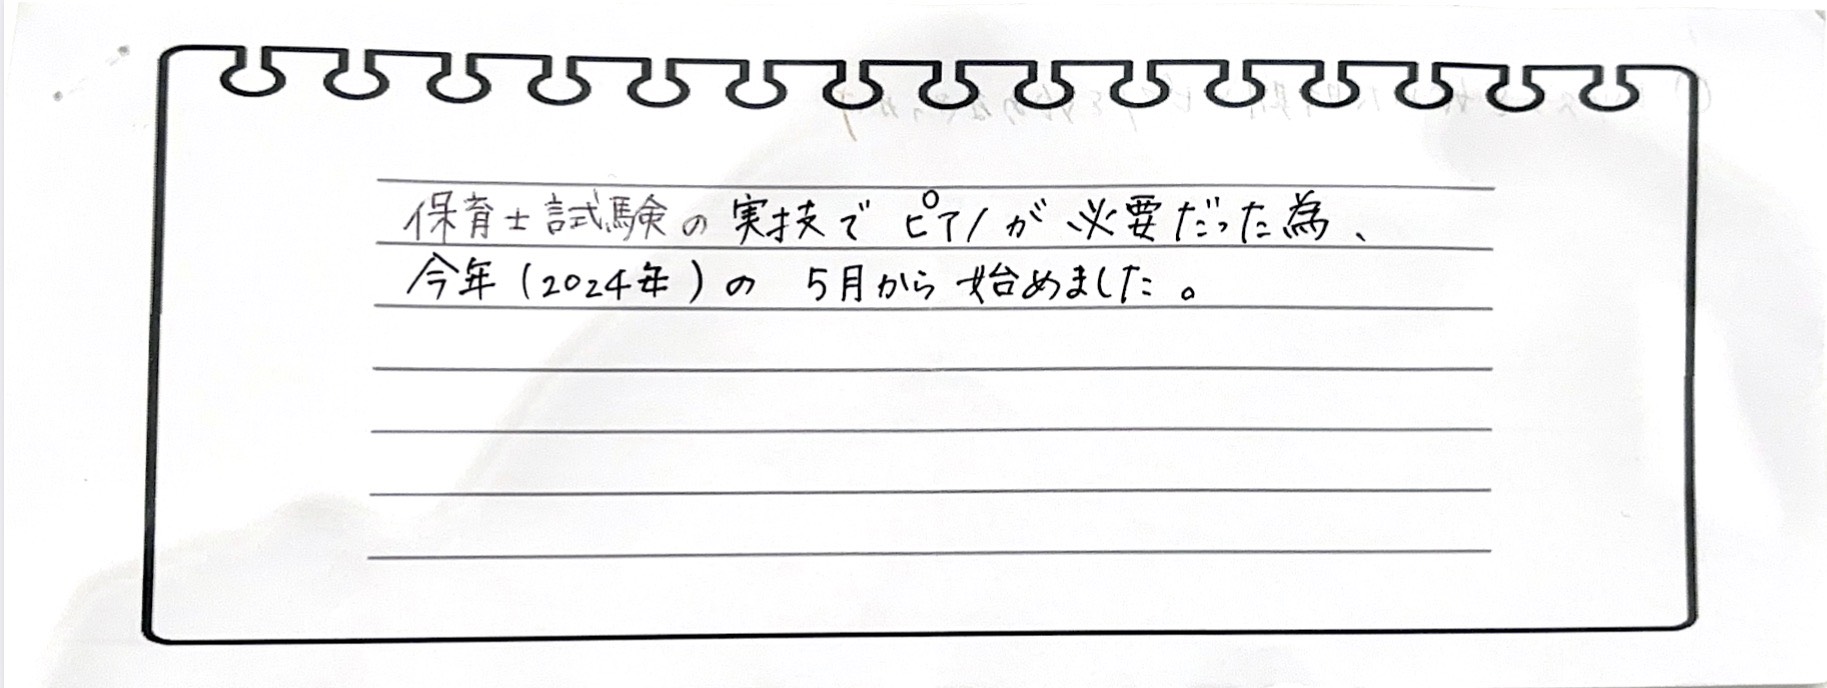 保育士試験の実技でピアノが必要だった為、
今年(2024年)の 5月から始めました。